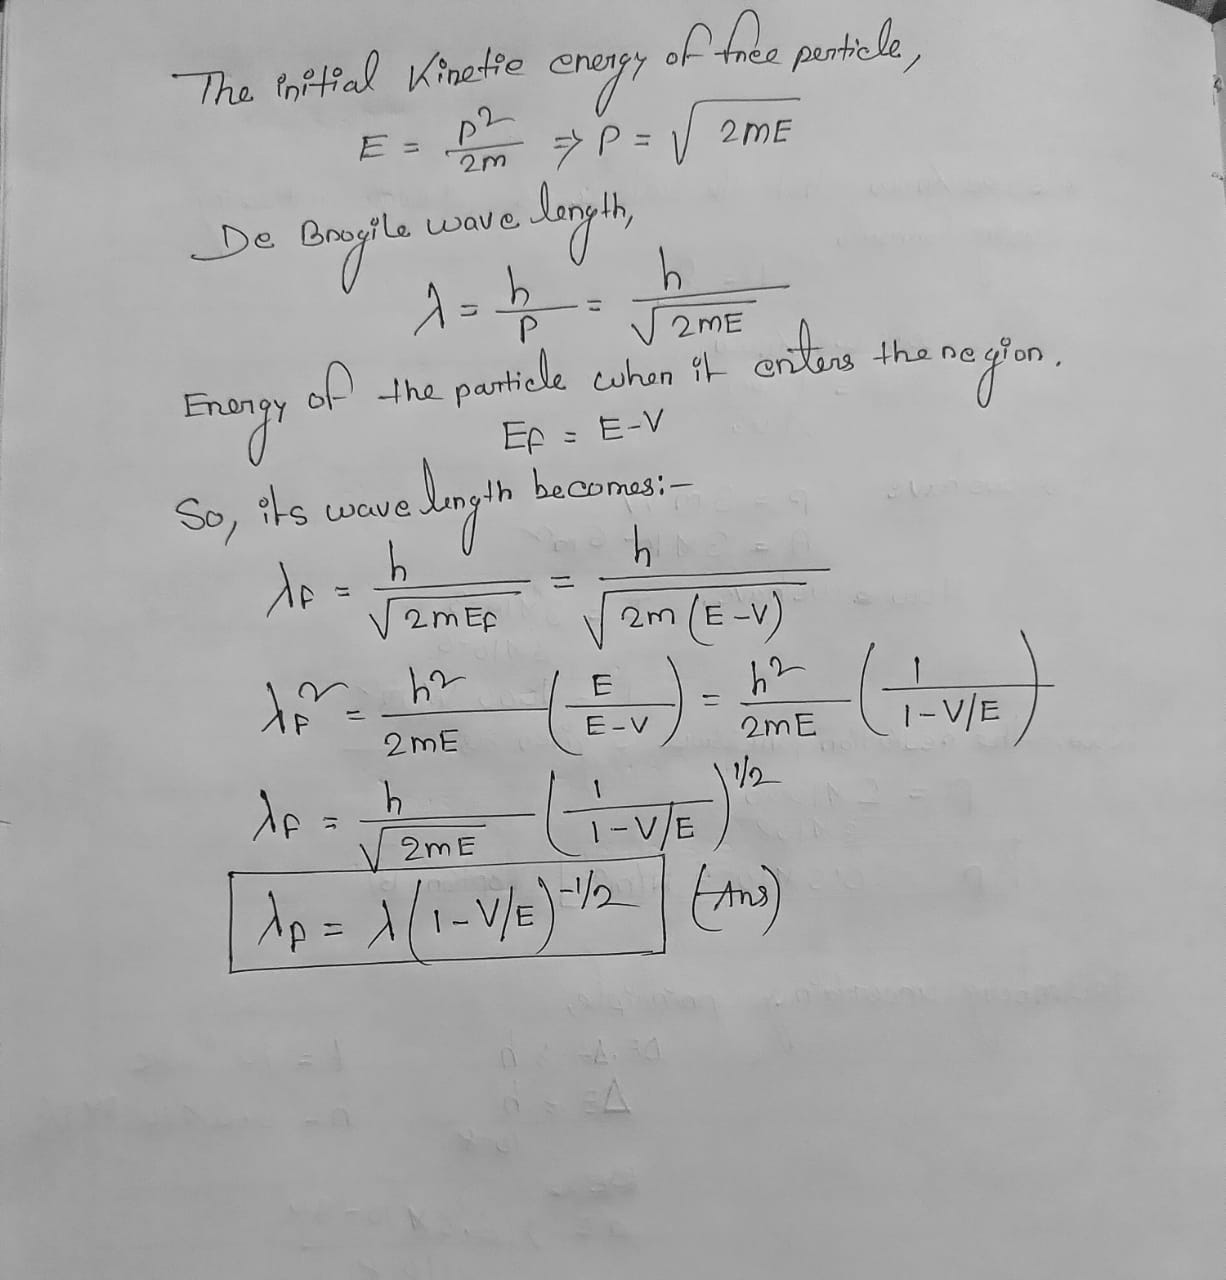 The initial Kinetic energy of free perticle,
E = p²/2m ⇒ P = √2mE
De Brogile wave length,
λ = h/P = h/√2mE
Energy of the particle when it enters the region.
Ef = E-V
So, its wave length becomes:-
λf = h/√2mEf = h/√2m(E-V)
λf² = h²/2mE (E/E-V) = h²/2mE (1/1-V/E)
λf = h/√2mE (1/1-V/E)^1/2
λf = λ(1-V/E)^-1/2 (Ans)